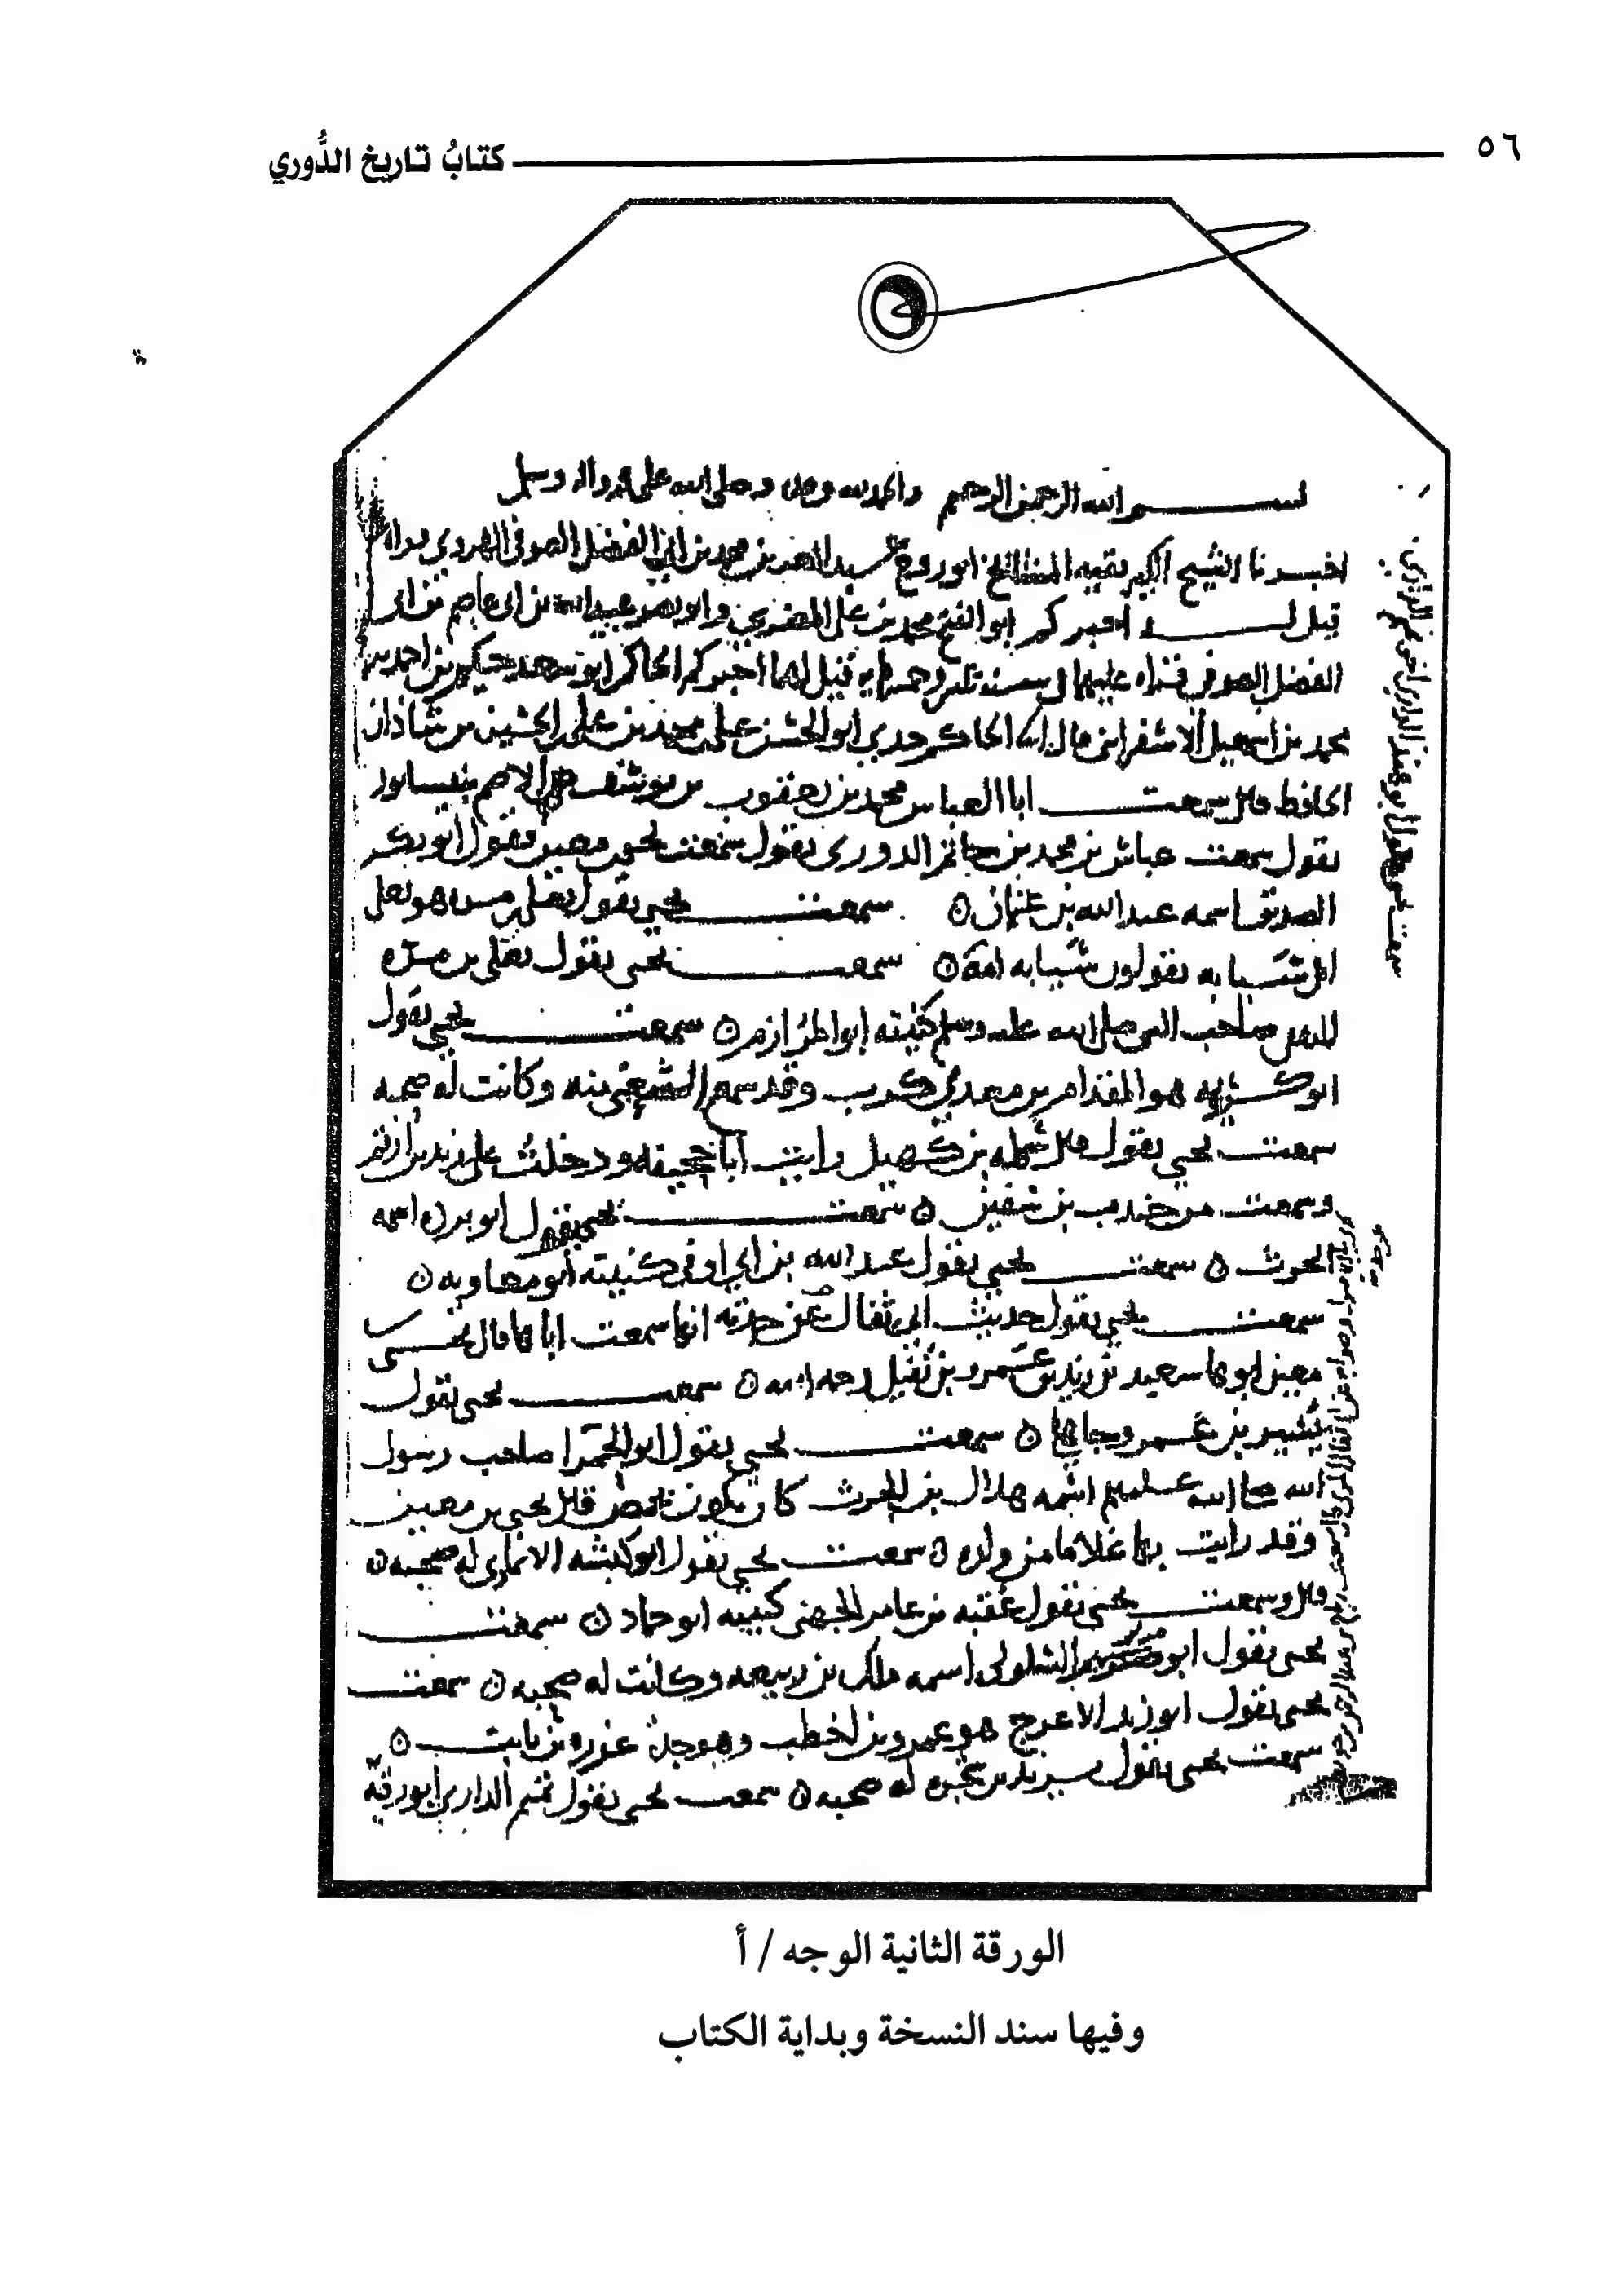 ٥٦
كتابُ تاريخ الدُّوري
بسم الله الرحمن الرحيم والحمد لله وحده وصلى الله على محمد واله وسلم
اخبرنا الشيخ الكبير بقيه المشائخ ابو روح عبد المعز بن محمد بن ابي الفضل الصوفي الهروي بهراه
قيل له اخبركم ابو الفتح محمد بن علي المضري وابو نصر عبيد الله بن ابي عاصم بن ابي
الفضل الصوفي قراه عليهما في سنه قيل لهما اخبركم الحاكم ابو سعد حكيم بن احمد بن
محمد بن اسمعيل الاسفرايني قال الحاكم حدثني ابو الحسن علي بن محمد بن علي بن الحسين بن شاذان
الحافظ قال سمعت ابا العباس محمد بن يعقوب بن يوسف الاصم بنيسابور
يقول سمعت عباس بن محمد بن حاتم الدوري يقول سمعت يحيى بن معين يقول ابو بكر
الصديق اسمه عبد الله بن عثمان ه سمعت يحيى يقول يعلى بن سيابه هو يعلى
ابن سيابه يقولون سيابه امه ه سمعت يحيى يقول يعلى بن مره
الثقفي صاحب النبي صلى الله عليه وسلم كنيته ابو المرازم ه سمعت يحيى يقول
ابو كريمه هو المقدام بن معدي كرب وقد سمع الشعبي منه وكانت له صحبه
سمعت يحيى يقول قال سلمه بن كهيل رايت ابا جحيفه ودخلت على زيد بن ارقم
وسمعت من جندب بن سفين ه سمعت يحيى يقول ابو برده اسمه
الحرث ه سمعت يحيى يقول عبد الله بن ابي اوفى كنيته ابو معاويه ه
سمعت يحيى يقول حديث ابي ثفال عن جدته انها سمعت اباها قال يحيى
معين ابوها سعيد بن زيد بن عمرو بن نفيل رحمه الله ه سمعت يحيى يقول
بن عمرو ه سمعت يحيى يقول ابو الحمرا صاحب رسول
الله صلى الله عليه وسلم اسمه هلال بن الحرث كان يكون بحمص قال يحيى بن معين
وقد رايت بها غلاما من ولده ه سمعت يحيى يقول ابو كبشه الانماري له صحبه ه
قال وسمعت يحيى يقول عقبه بن عامر الجهني كنيته ابو حماد ه سمعت
يحيى يقول ابو مريم السلولي اسمه ملك بن ربيعه وكانت له صحبه ه سمعت
يحيى يقول ابو زيد الاعرج هو عمرو بن اخطب وهو جد عزره بن ثابت ه
سمعت يحيى يقول يزيد بن شجره له صحبه ه سمعت يحيى يقول تميم الداري ابو رقيه
سمعت يحيى يقول ابو هند الداري اخو تميم الداري
الورقة الثانية الوجه / أ
وفيها سند النسخة وبداية الكتاب